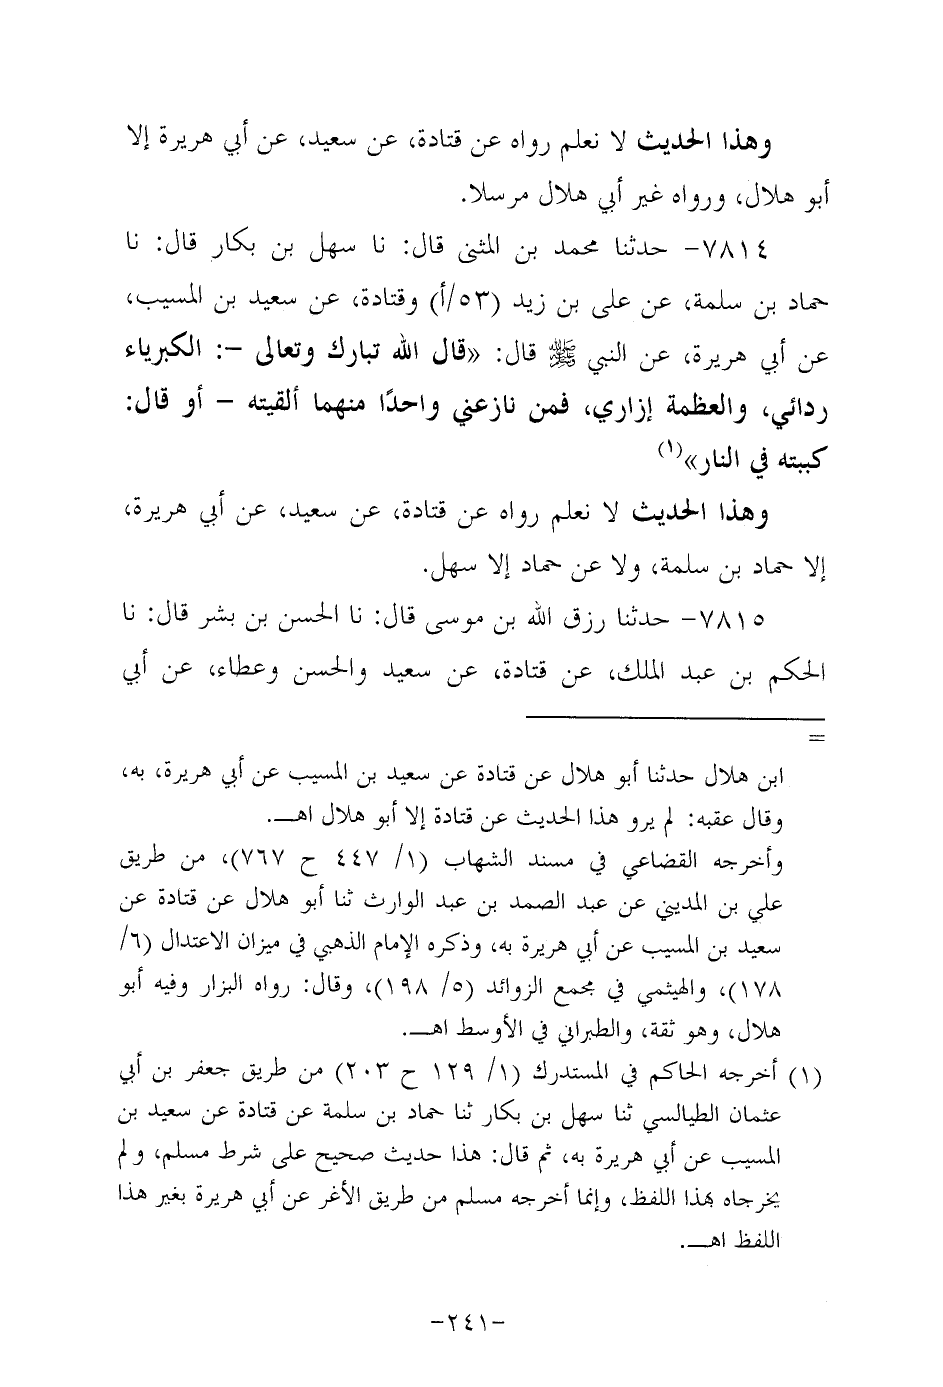 وهذا الحديث لا نعلم رواه عن قتادة، عن سعيد، عن أبي هريرة إلا
أبو هلال، ورواه غير أبي هلال مرسلا.
٧٨١٤- حدثنا محمد بن المثنى قال: نا سهل بن بكار قال: نا
حماد بن سلمة، عن علي بن زيد (٥٣/أ) وقتادة، عن سعيد بن المسيب،
عن أبي هريرة، عن النبي ﷺ قال: «قال الله تبارك وتعالى -: الكبرياء
ردائي، والعظمة إزاري، فمن نازعني واحدًا منهما ألقيته - أو قال:
كببته في النار»(١)
وهذا الحديث لا نعلم رواه عن قتادة، عن سعيد، عن أبي هريرة،
إلا حماد بن سلمة، ولا عن حماد إلا سهل.
٧٨١٥- حدثنا رزق الله بن موسى قال: نا الحسن بن بشر قال: نا
الحكم بن عبد الملك، عن قتادة، عن سعيد والحسن وعطاء، عن أبي
=
ابن هلال حدثنا أبو هلال عن قتادة عن سعيد بن المسيب عن أبي هريرة، به،
وقال عقبه: لم يرو هذا الحديث عن قتادة إلا أبو هلال اهـ.
وأخرجه القضاعي في مسند الشهاب (١/ ٤٤٧ ح ٧٦٧)، من طريق
علي بن المديني عن عبد الصمد بن عبد الوارث ثنا أبو هلال عن قتادة عن
سعيد بن المسيب عن أبي هريرة به، وذكره الإمام الذهبي في ميزان الاعتدال (٦/
١٧٨)، والهيثمي في مجمع الزوائد (٥/ ١٩٨)، وقال: رواه البزار وفيه أبو
هلال، وهو ثقة، والطبراني في الأوسط اهـ.
(١) أخرجه الحاكم في المستدرك (١/ ١٢٩ ح ٢٠٣) من طريق جعفر بن أبي
عثمان الطيالسي ثنا سهل بن بكار ثنا حماد بن سلمة عن قتادة عن سعيد بن
المسيب عن أبي هريرة به، ثم قال: هذا حديث صحيح على شرط مسلم، ولم
يخرجاه بهذا اللفظ، وإنما أخرجه مسلم من طريق الأغر عن أبي هريرة بغير هذا
اللفظ اهـ.
-٢٤١-